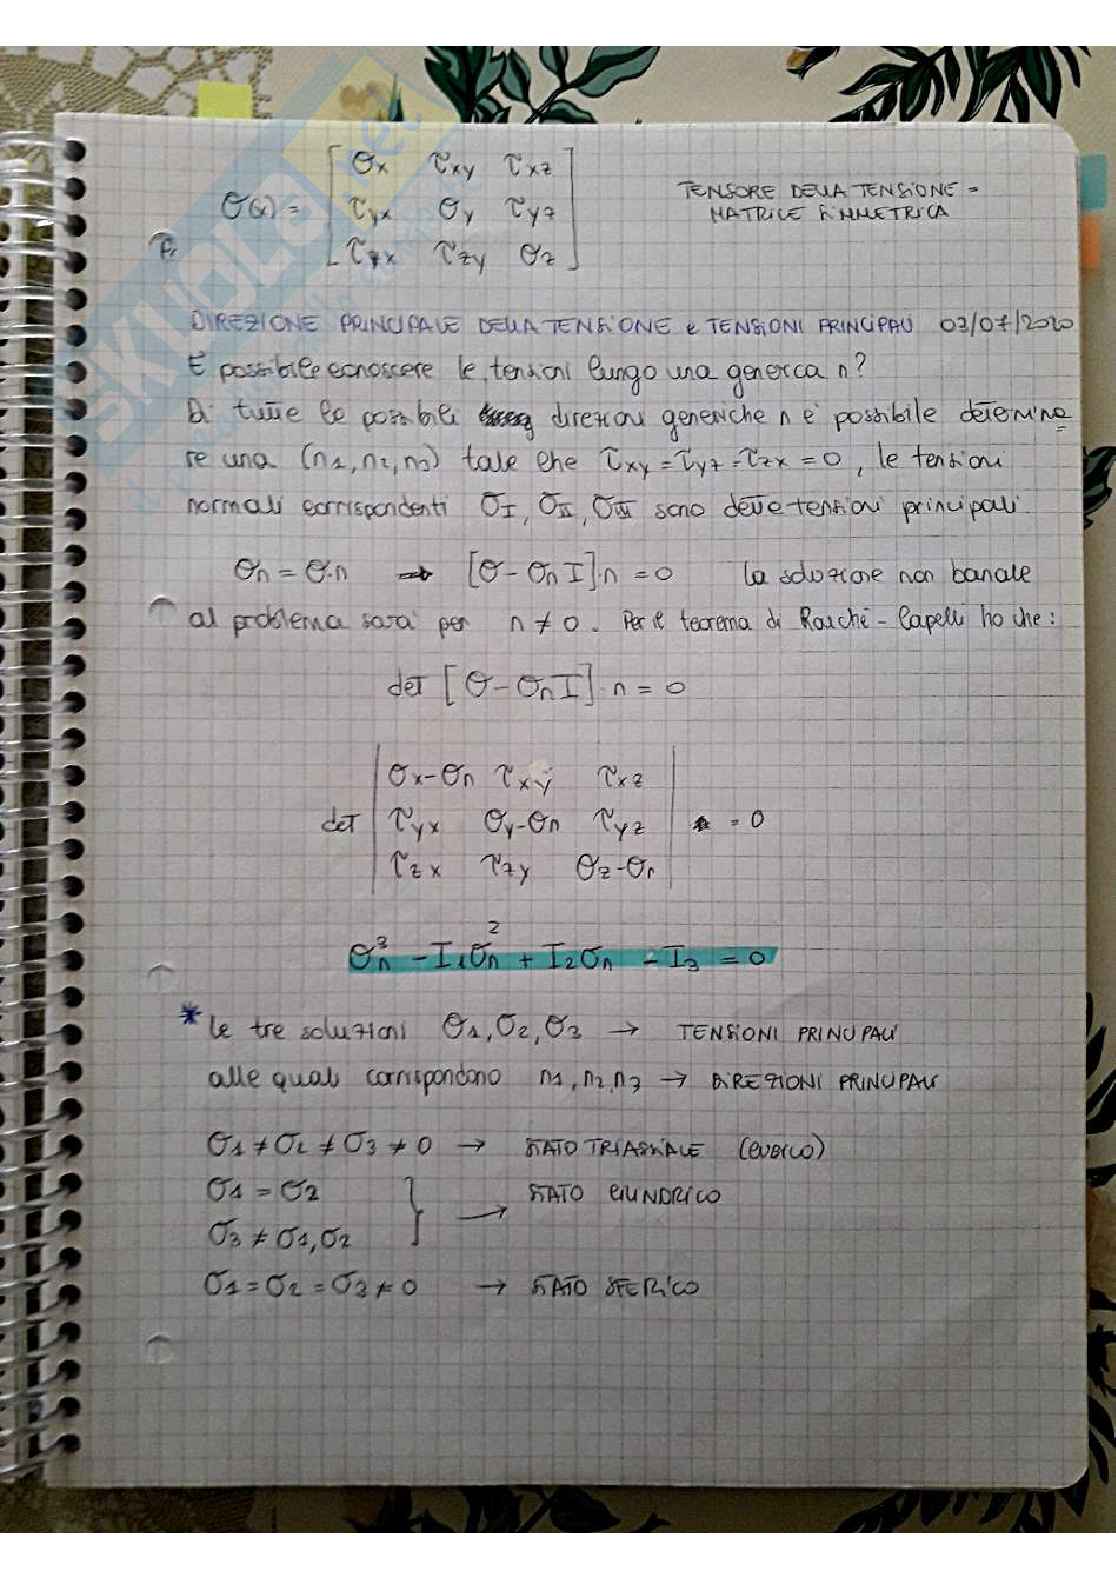 σ(x) = [ σx τxy τxz
τyx σy τyz
τzx τzy σz ]
TENSORE DELLA TENSIONE =
MATRICE SIMMETRICA
DIREZIONE PRINCIPALE DELLA TENSIONE e TENSIONI PRINCIPALI 03/07/2020
È possibile conoscere le tensioni lungo una generica n?
Di tutte le possibili direzioni generiche n è possibile determina
re una (n1, n2, n3) tale che τxy = τyz = τzx = 0, le tensioni
normali corrispondenti σI, σII, σIII sono dette tensioni principali.
σn = σ·n → [σ - σn I]·n = 0 la soluzione non banale
al problema sarà per n ≠ 0. Per il teorema di Rouché - Capelli ho che:
det [σ - σn I]·n = 0
det | σx-σn τxy τxz |
| τyx σy-σn τyz | = 0
| τzx τzy σz-σn |
σn³ - I1σn² + I2σn - I3 = 0
* le tre soluzioni σ1, σ2, σ3 → TENSIONI PRINCIPALI
alle quali corrispondono n1, n2, n3 → DIREZIONI PRINCIPALI
σ1 ≠ σ2 ≠ σ3 ≠ 0 → STATO TRIASSIALE (CUBICO)
σ1 = σ2 } → STATO CILINDRICO
σ3 ≠ σ1, σ2
σ1 = σ2 = σ3 ≠ 0 → STATO SFERICO
SKUOLA.net